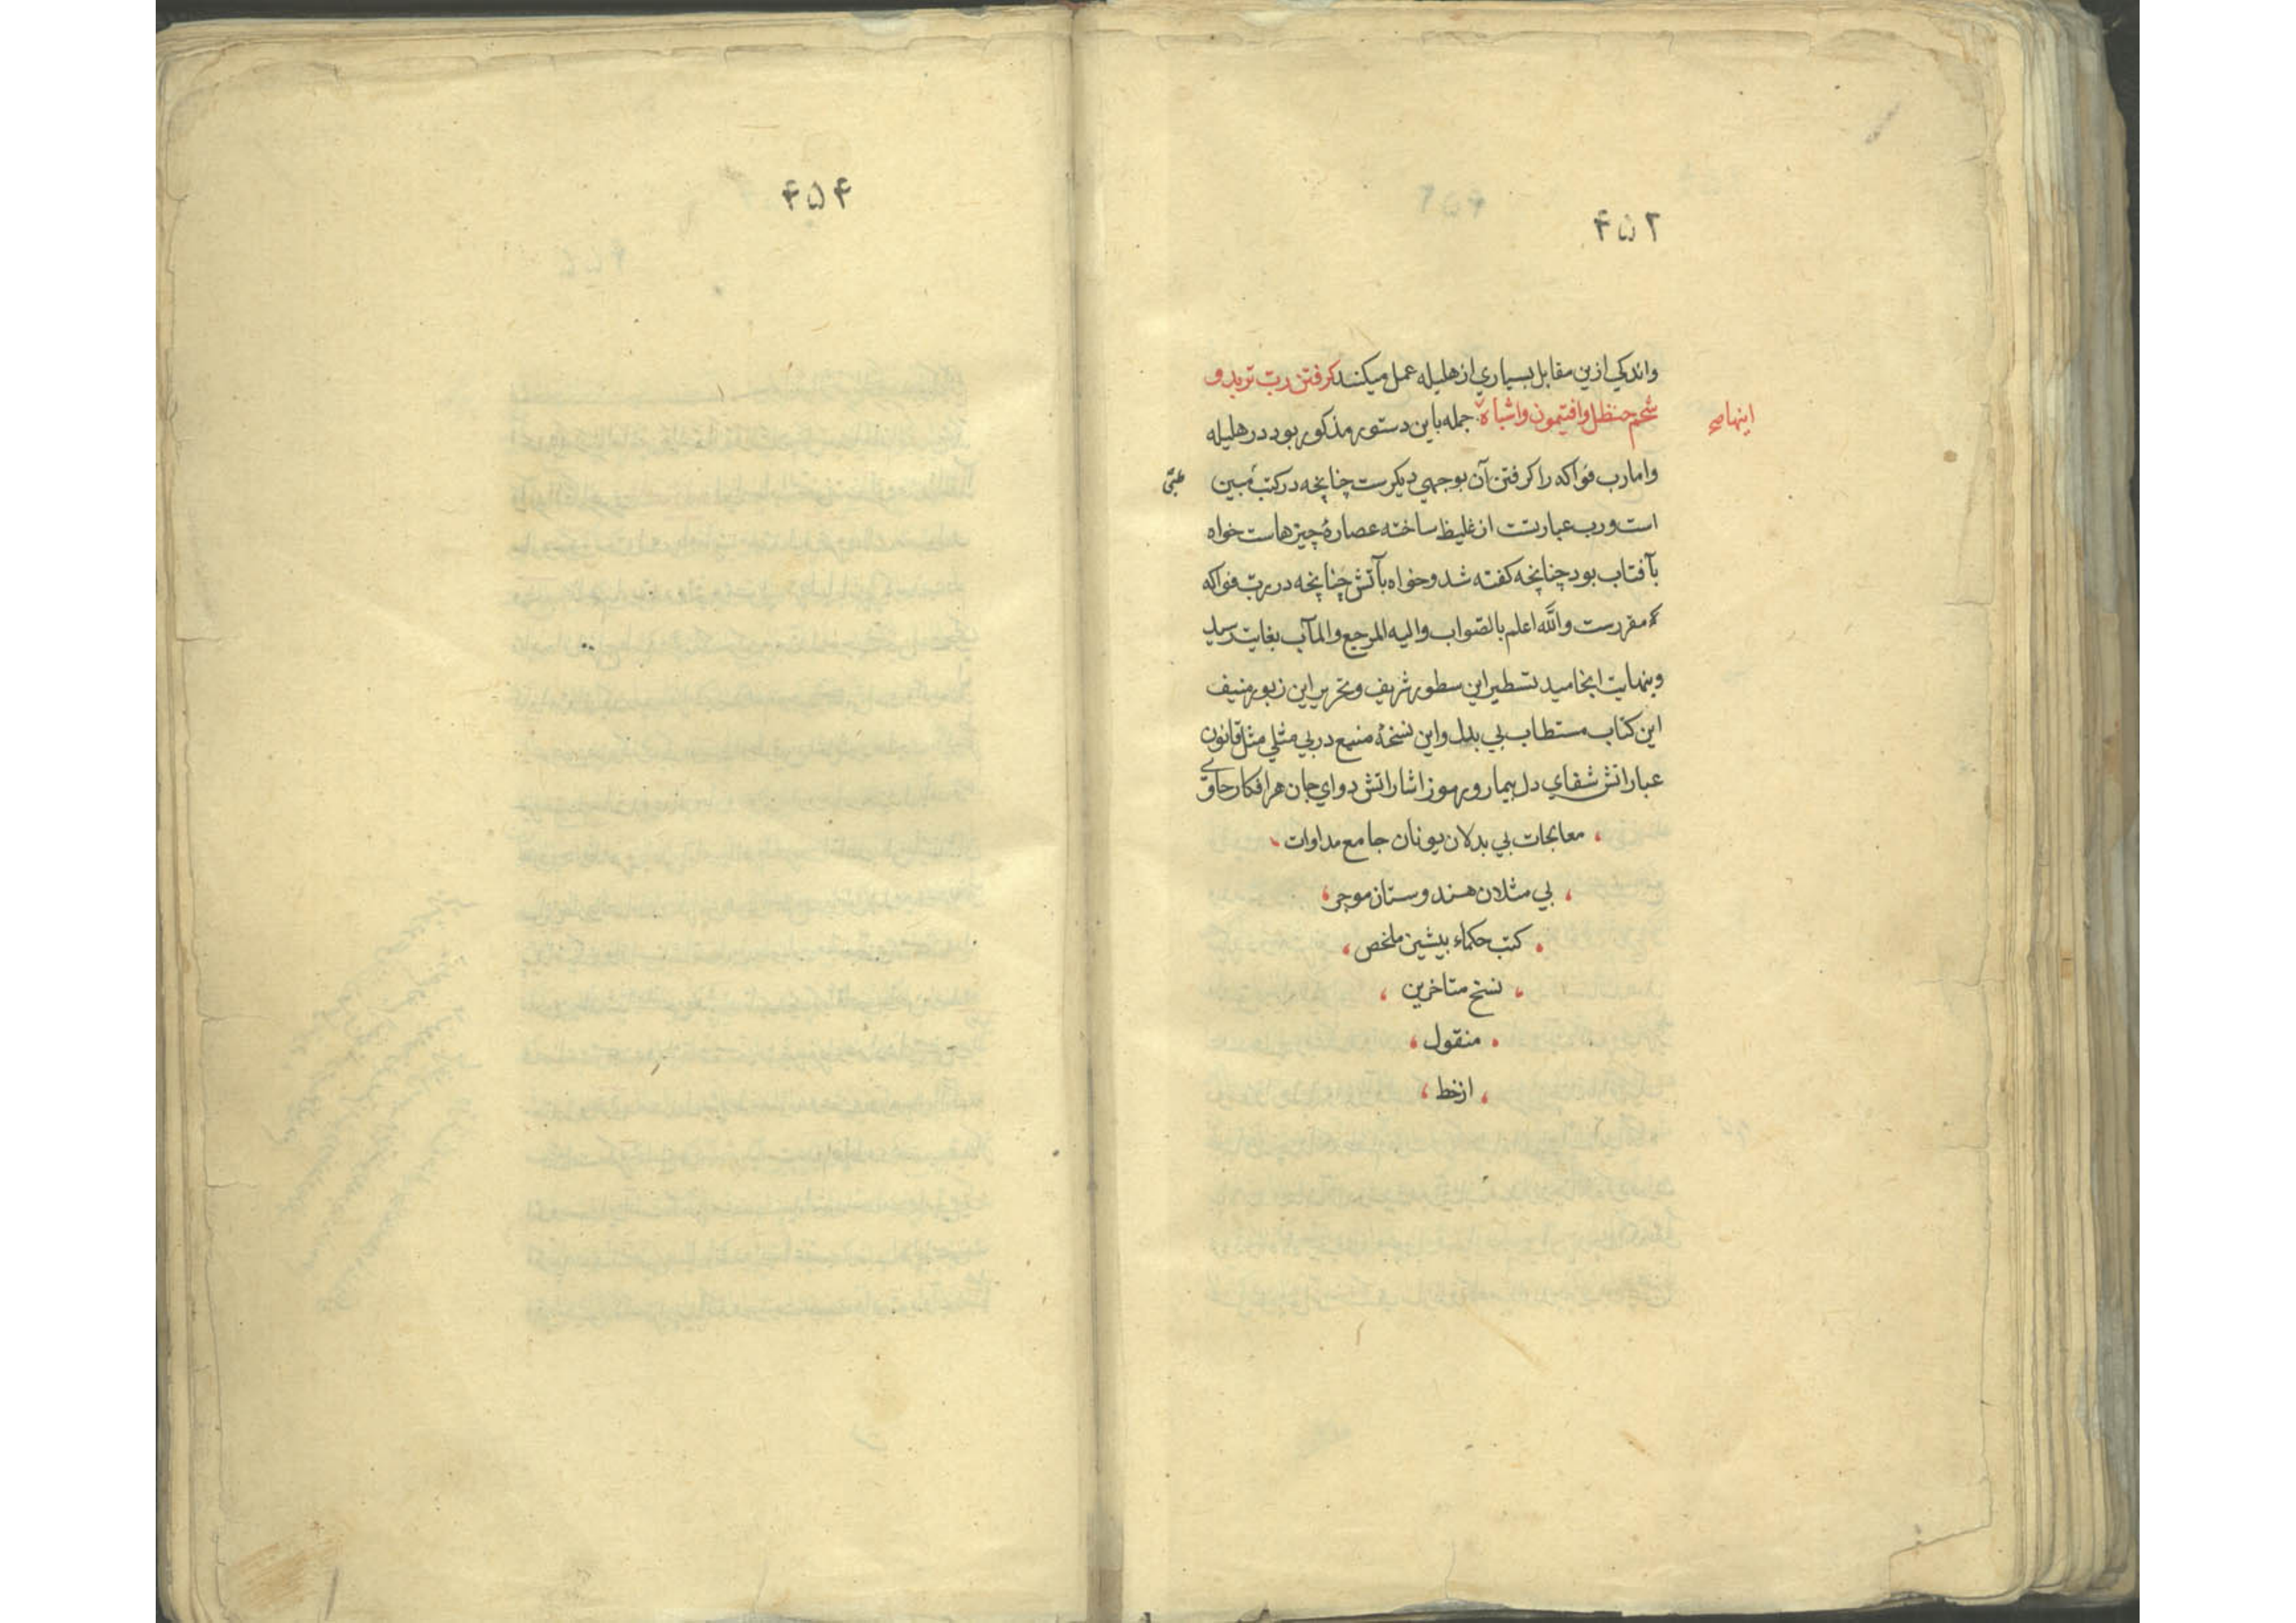 ۴۵۲
واندکي ازين مقابل بسياري از هليله عمل ميکنند کرفتن رب تربد و
شحم حنظل وافتيمون واشباه جمله باين دستور مذکور بود در هليله
اينها صح
واما رب فواکه را کرفتن آن بوجهي ديکرست چنانچه در کتب مبين
است ورب عبارتست از غليظ ساخته عصارهٔ چيزهاست خواه
بآفتاب بود چنانچه کفته شد وخواه بآتش چنانچه در رب فواکه
مقررست والله اعلم بالصواب واليه المرجع والمآب بغايت رسيد
وبنهايت انجاميد تسطير اين سطور شريف وتحرير اين زبور منيف
اين کتاب مستطاب بي بدل واين نسخهٔ منيع در بي مثلي مثل قانون
عباراتش شفاي دل بيمار ورموز اشاراتش دواي جان هر افکار حاوي
معالجات بي بدلان يونان جامع مداوات
بي مثلان هندوستان موجز
کتب حکماء پيشين ملخص
نسخ متاخرين
منقول
از خط
۴۵۴